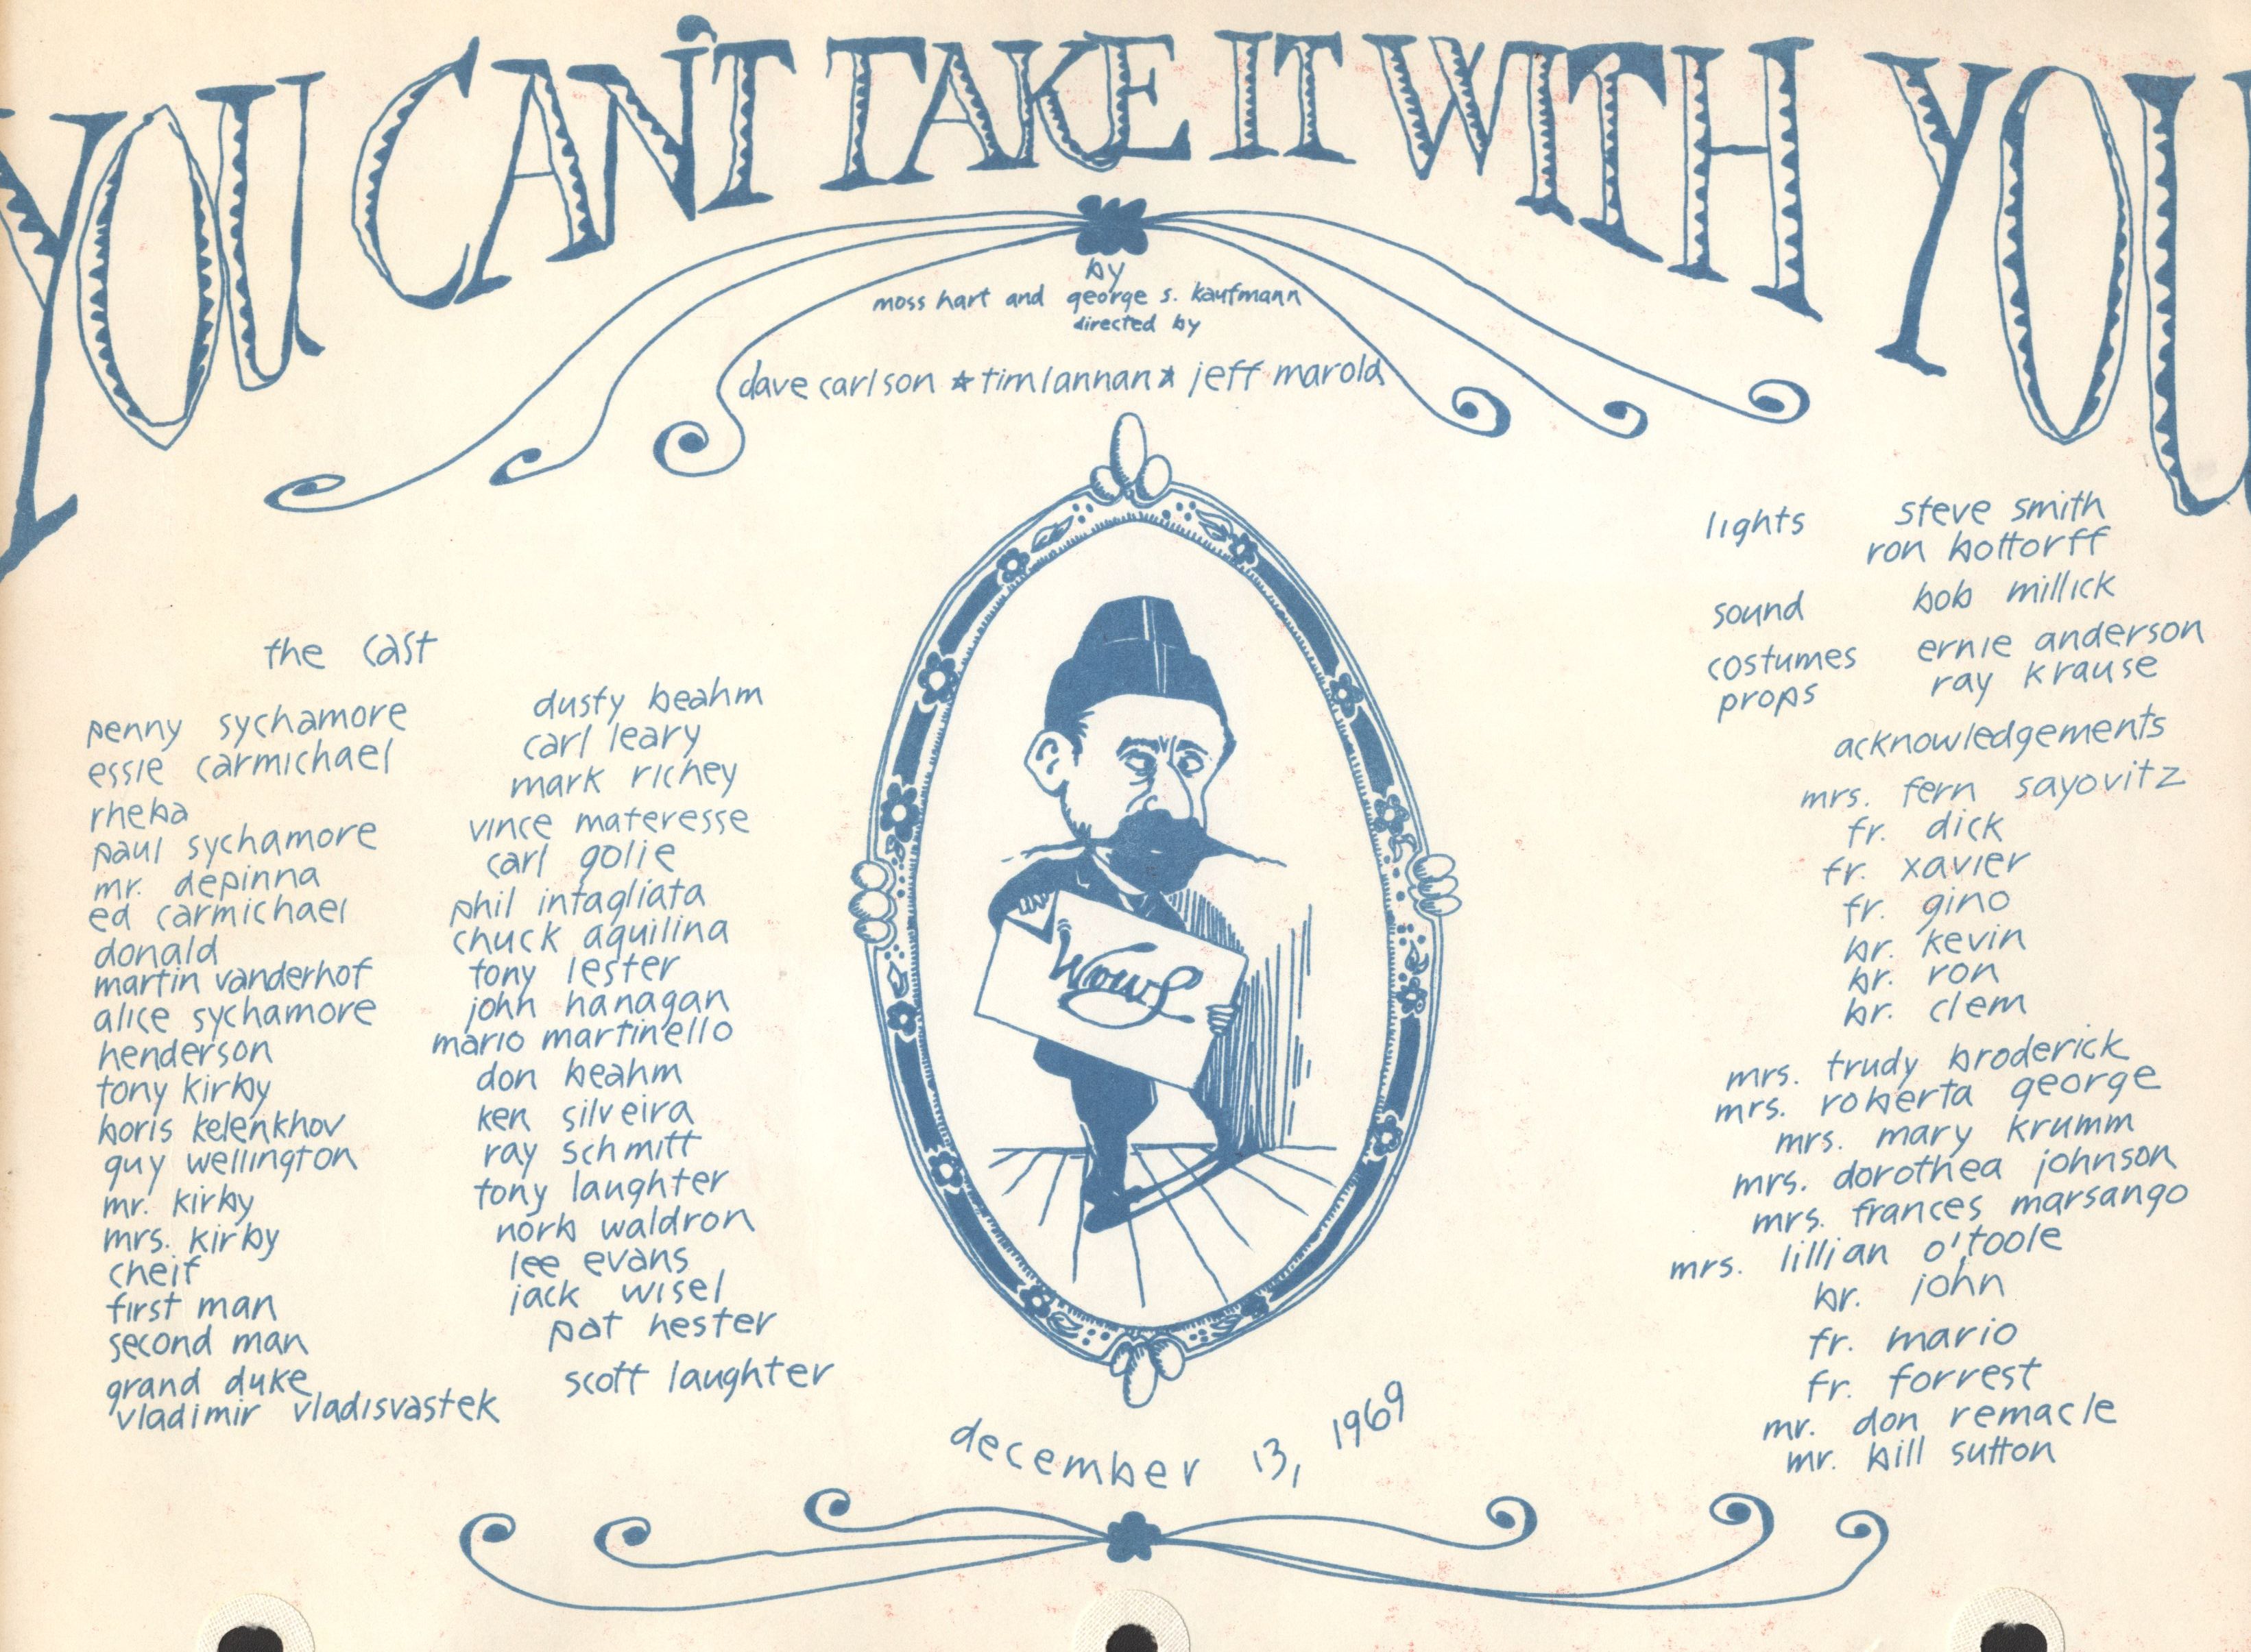 YOU CAN'T TAKE IT WITH YOU
by
moss hart and george s. kaufmann
directed by
dave carlson ★ tim lannan ★ jeff marold
the cast
penny sychamore dusty beahm
essie carmichael carl leary
rheba mark richey
paul sychamore vince materesse
mr. depinna carl golie
ed carmichael phil intagliata
donald chuck aquilina
martin vanderhof tony lester
alice sychamore john hanagan
henderson mario martinello
tony kirby don beahm
boris kelenkhov ken silveira
guy wellington ray schmitt
mr. kirby tony laughter
mrs. kirby norb waldron
cheif lee evans
first man jack wisel
second man pat hester
grand duke
vladimir vladisvastek scott laughter
Wows
december 13, 1969
lights steve smith
ron bottorff
sound bob millick
costumes ernie anderson
props ray krause
acknowledgements
mrs. fern sayovitz
fr. dick
fr. xavier
fr. gino
br. kevin
br. ron
br. clem
mrs. trudy broderick
mrs. roberta george
mrs. mary krumm
mrs. dorothea johnson
mrs. frances marsango
mrs. lillian o'toole
br. john
fr. mario
fr. forrest
mr. don remacle
mr. bill sutton